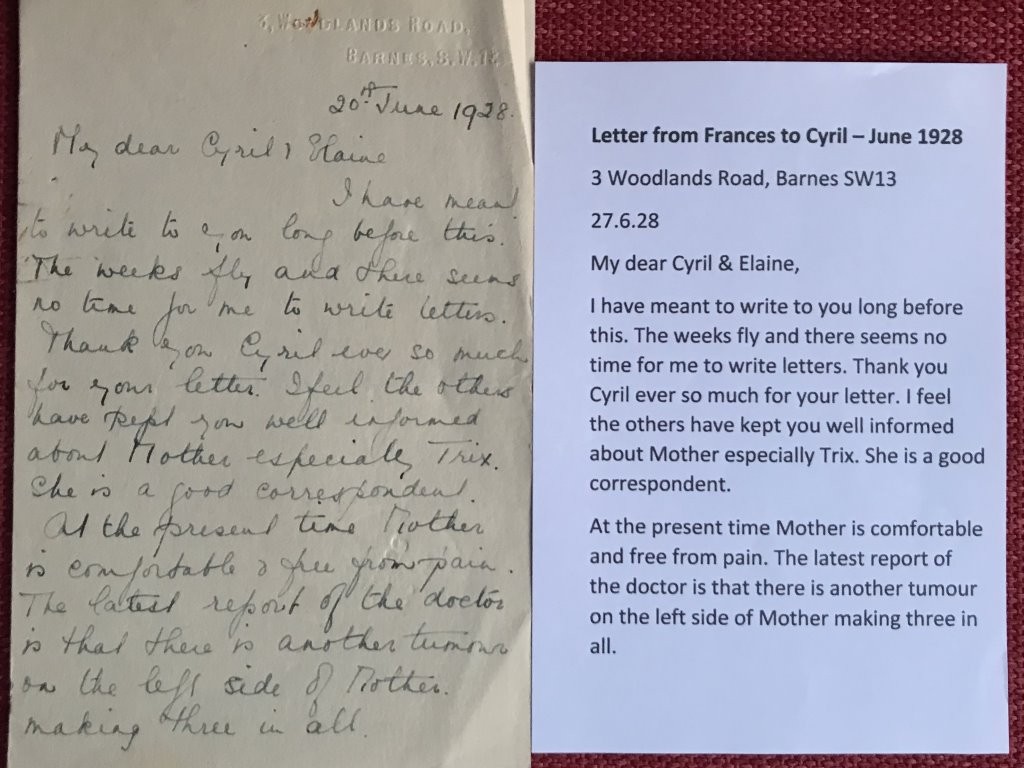 3, WOODLANDS ROAD,
BARNES, S.W.13.
20th June 1928.
My dear Cyril & Elaine
I have meant
to write to you long before this.
The weeks fly and there seems
no time for me to write letters.
Thank you Cyril ever so much
for your letter. I feel the others
have kept you well informed
about Mother especially Trix.
She is a good correspondent.
At the present time Mother
is comfortable & free from pain.
The latest report of the doctor
is that there is another tumour
on the left side of Mother.
making three in all.
Letter from Frances to Cyril – June 1928
3 Woodlands Road, Barnes SW13
27.6.28
My dear Cyril & Elaine,
I have meant to write to you long before
this. The weeks fly and there seems no
time for me to write letters. Thank you
Cyril ever so much for your letter. I feel
the others have kept you well informed
about Mother especially Trix. She is a good
correspondent.
At the present time Mother is comfortable
and free from pain. The latest report of
the doctor is that there is another tumour
on the left side of Mother making three in
all.